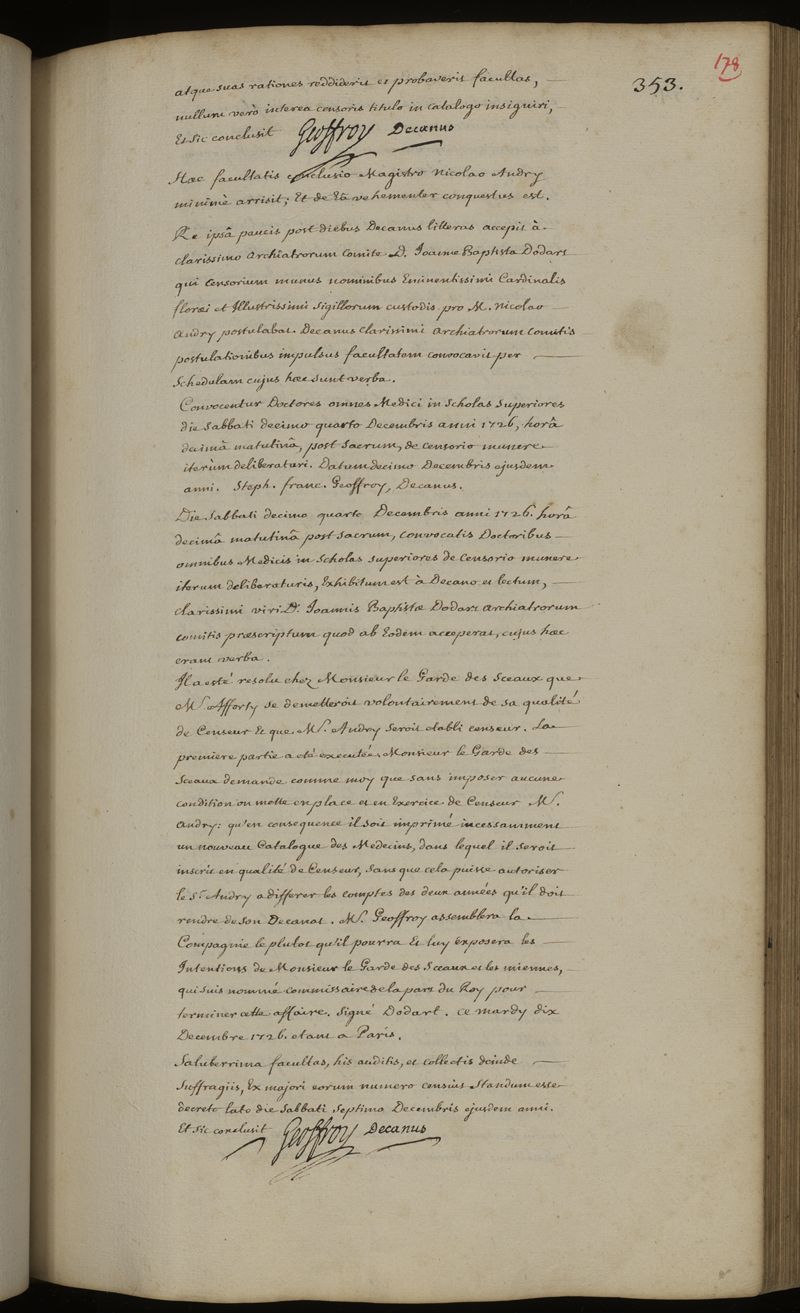 178
353.
atque suas rationes reddiderit et probaverit facultas,
nullum verò interea censoris titulo in catalogo insigniri,
Et sic conclusit Geoffroy Decanus
Hæc facultatis conclusio Magistro Nicolao Andry
minimè arrisit; Et de Eâ vehementer conquestus est.
Re ipsâ paucis post diebus Decanus litteras accepit à
clarissimo Archiatrorum Comite D. Joanne Baptista Dodart
qui Censorium munus nominibus Eminentissimi Cardinalis
floræi et Illustrissimi Sigillorum custodis pro M. Nicolao
Andry postulabat. Decanus Clarissimi Archiatrorum Comitis
postulationibus impulsus facultatem convocavit per
Schedulam cujus hæc sunt verba.
Convocentur Doctores omnes Medici in Scholas Superiores
die Sabbati decimo quarto Decembris anni 1726, horâ
decimâ matutinâ, post Sacrum, de Censorio munere
iterùm deliberaturi. Datum decimo Decembris ejusdem
anni. Steph. franc. Geoffroy, Decanus.
Die Sabbati decimo quarto Decembris anni 1726. horâ
decimâ matutinâ post Sacrum, convocatis Doctoribus
omnibus Medicis in Scholas superiores de Censorio munere
iterum deliberaturis, Exhibitum est à Decano et lectum,
clarissimi viri D. Joannis Baptistæ Dodart Archiatrorum
comitis præscriptum quod ab Eodem acceperat, cujus hæc
erant verba.
Il a esté resolu chez Monsieur le Garde des Sceaux que
M. Afforty se demetteroit volontairement de sa qualité
de Censeur Et que M. Andry seroit etabli censeur. La
premiere partie a eté executée. Monsieur le Garde des
Sceaux demande comme moy que sans imposer aucune
condition on mette en place et en Exercice de Censeur M.
Andry: qu'en consequence il soit imprimé incessamment
un nouveau Catalogue des Medecins, dans lequel il seroit
inscrit en qualité de Censeur, sans que cela puisse autoriser
le Sr. Andry a differer les comptes des deux années qu'il doit
rendre de son Decanat. M. Geoffroy assemblera la
Compagnie le plutot qu'il pourra Et luy exposera les
Intentions de Monsieur le Garde des Sceaux et les miennes,
qui suis nommé commissaire de la part du Roy pour
terminer cette affaire. Signé Dodart. ce mardy dix
Decembre 1726. etant a Paris.
Saluberrima facultas, his auditis, et collectis deinde
Suffragiis, Ex majori eorum numero censuit Standum esse
decreto lato die Sabbati Septimo Decembris ejusdem anni.
Et sic conclusit Geoffroy Decanus